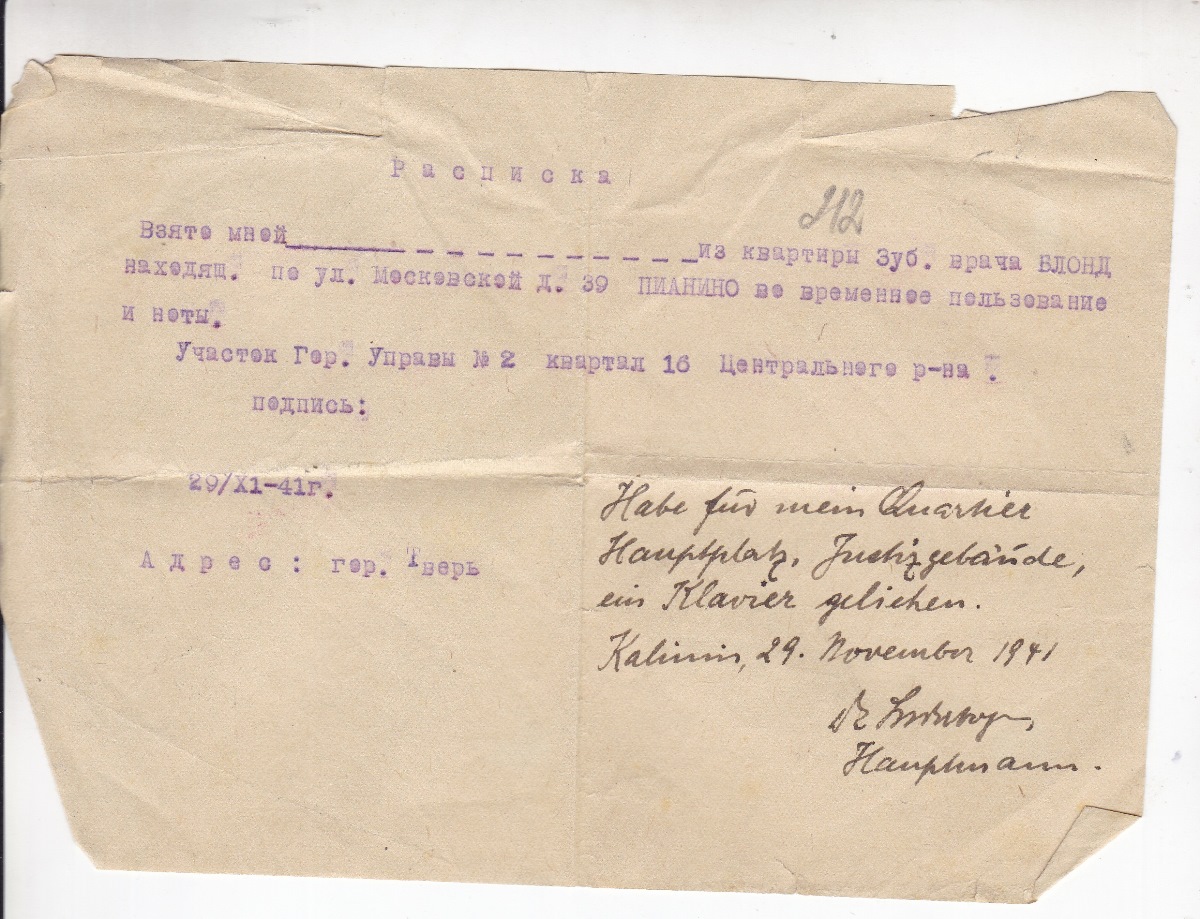 Расписка
212
Взято мной_ _ _ _ _ _ _ _ _ _ _ _из квартиры Зуб. врача БЛОНД
находящ. по ул. Московской д. 39 ПИАНИНО во временное пользование
и ноты.
Участок Гор. Управы № 2 квартал 16 Центрального р-на .
подпись:
29/XI-41г.
Адрес: гор. Тверь
Habe für mein Quartier
Hauptplatz, Justizgebäude,
ein Klavier geliehen.
Kalinin, 29. November 1941
Dr
Hauptmann.